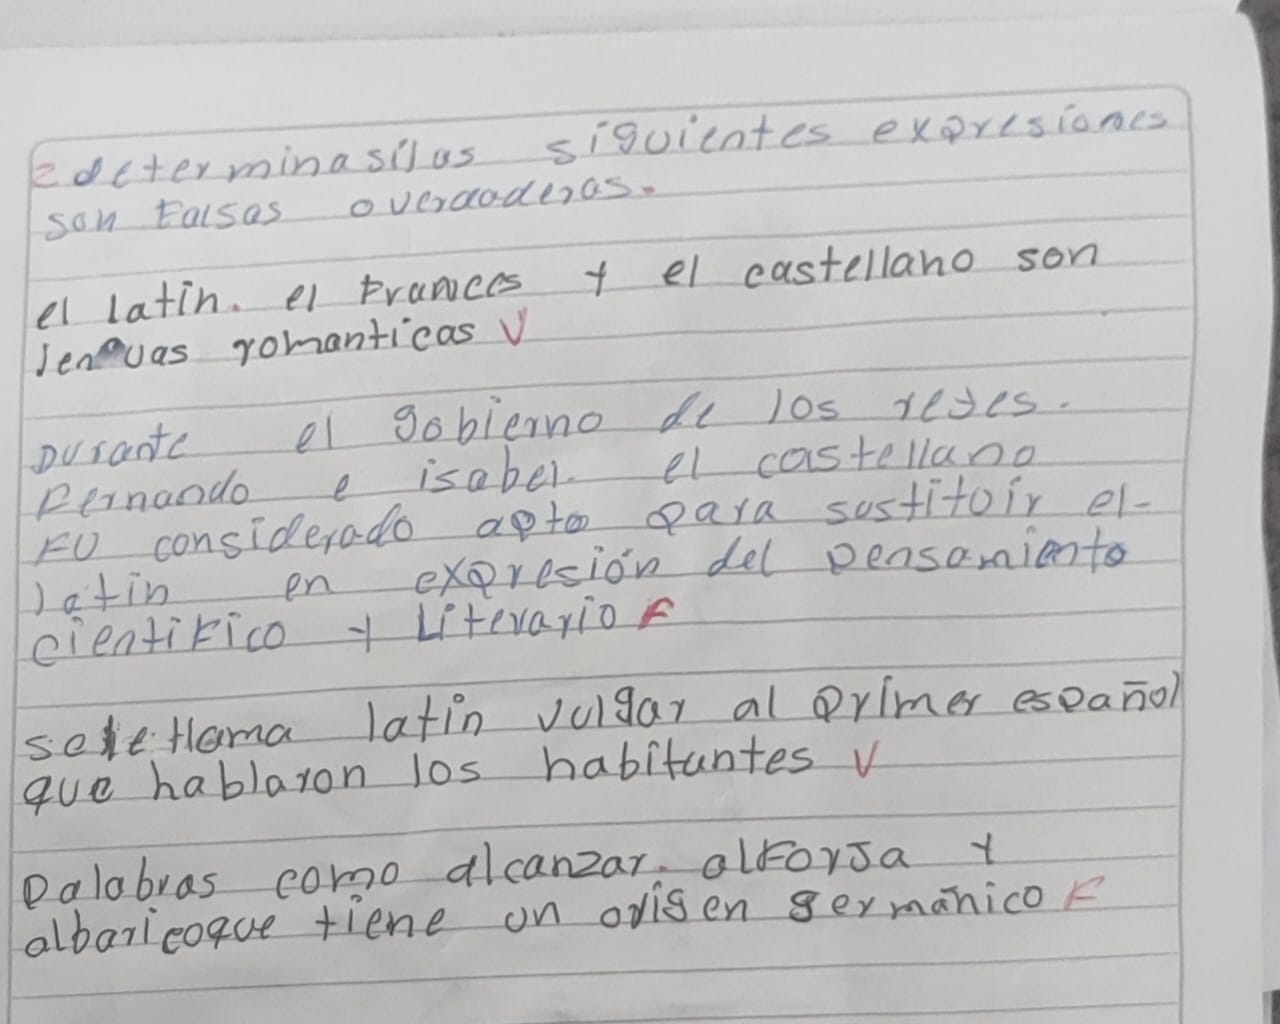 2 determina si las siguientes expresiones
son falsas o verdaderas.
el latín. el francés y el castellano son
lenguas romanticas V
Durante el gobierno de los reyes.
Fernando e isabel. el castellano
FU considerado apto para sustitoir el-
latin en expresión del pensamiento
cientifico y Literario F
se le llama latín vulgar al primer español
que hablaron los habitantes V
Palabras como alcanzar. alforja y
albaricoque tiene un origen germánico F